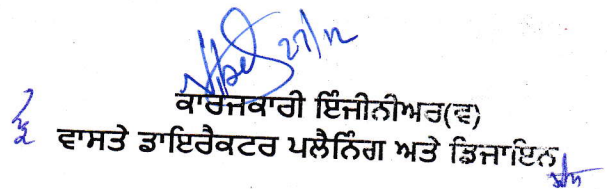 27/12
ਕਾਰਜਕਾਰੀ ਇੰਜੀਨੀਅਰ(ਵ)
ਵਾਸਤੇ ਡਾਇਰੈਕਟਰ ਪਲੈਨਿੰਗ ਅਤੇ ਡਿਜਾਇਨ